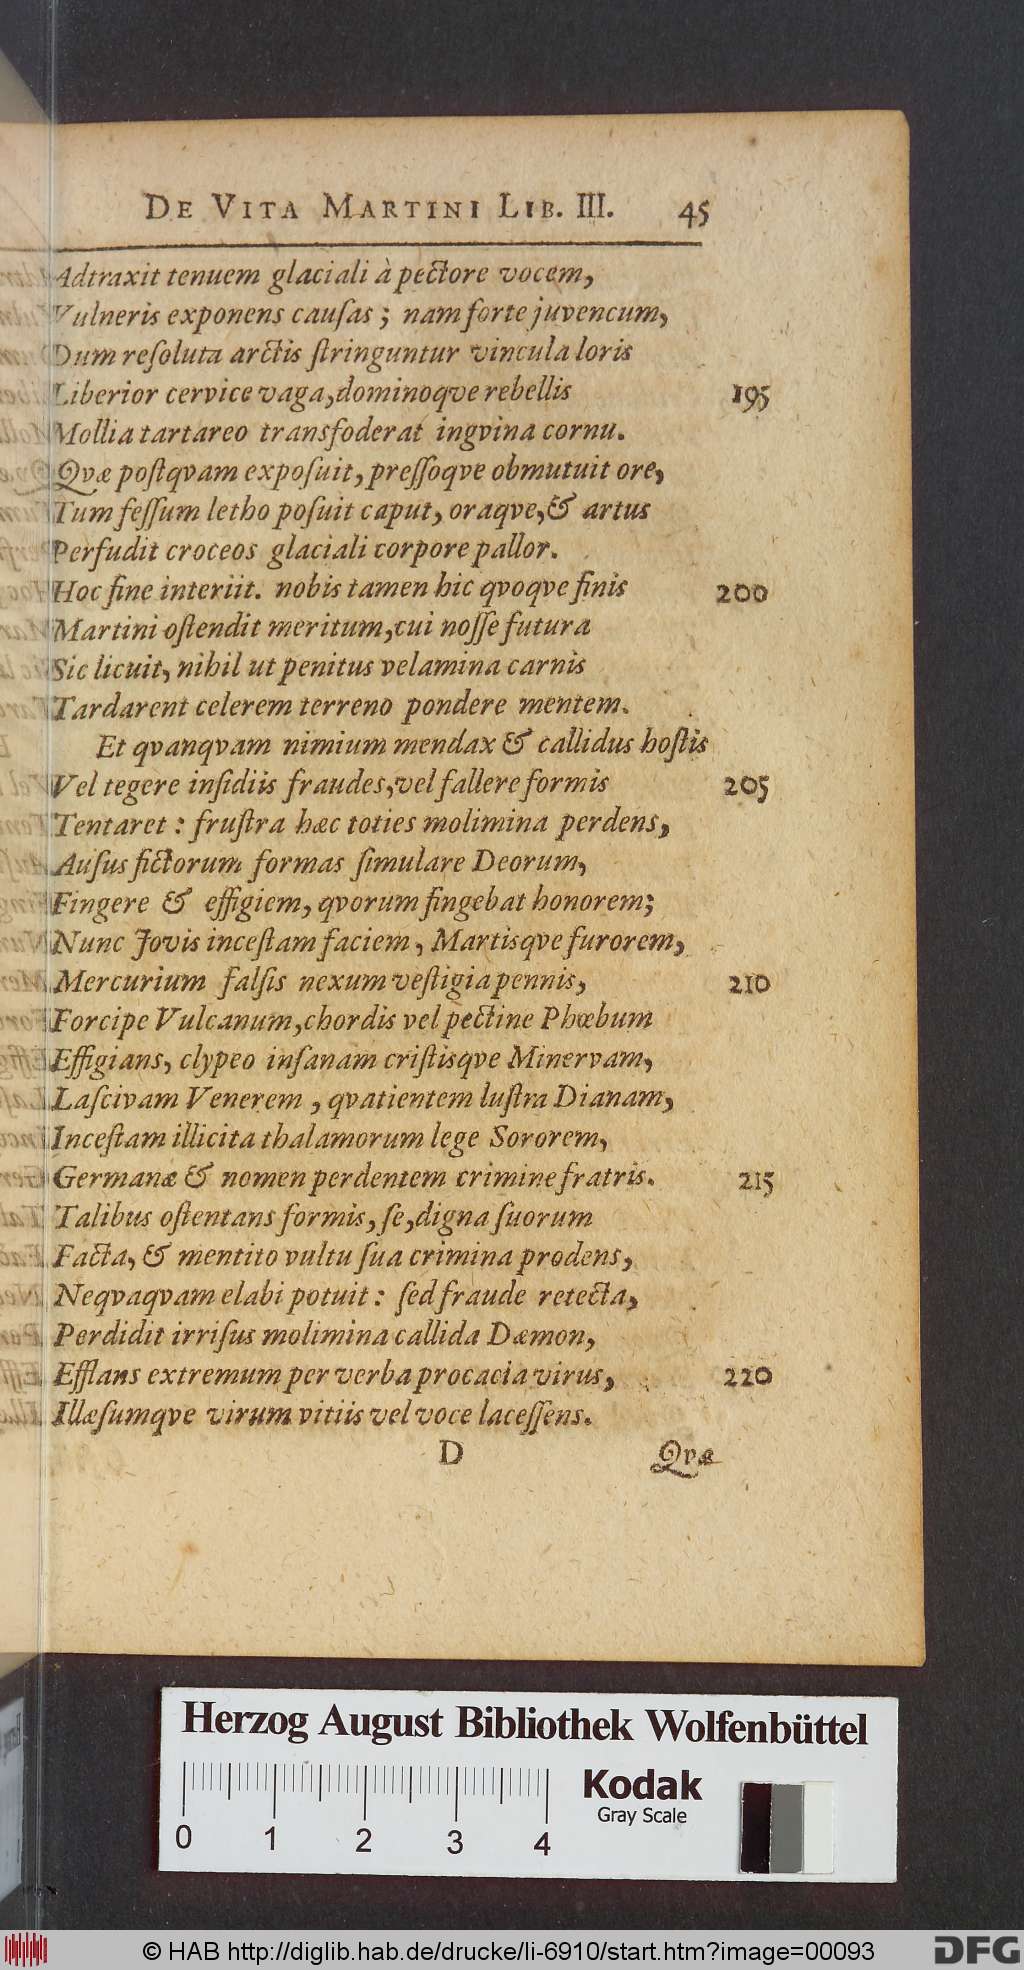 DE VITA MARTINI LIB. III. 45
Adtraxit tenuem glaciali à pectore vocem,
Vulneris exponens cauſas; nam forte juvencum,
Dum reſoluta arctis ſtringuntur vincula loris
Liberior cervice vaga, dominoqve rebellis 195
Mollia tartareo transfoderat ingvina cornu.
Qvæ poſtqvam expoſuit, preſſoqve obmutuit ore,
Tum feſſum letho poſuit caput, oraqve, & artus
Perfudit croceos glaciali corpore pallor.
Hoc fine interiit. nobis tamen hic qvoqve finis 200
Martini oſtendit meritum, cui noſſe futura
Sic licuit, nihil ut penitus velamina carnis
Tardarent celerem terreno pondere mentem.
Et qvanqvam nimium mendax & callidus hoſtis
Vel tegere inſidiis fraudes, vel fallere formis 205
Tentaret: fruſtra hæc toties molimina perdens,
Auſus fictorum formas ſimulare Deorum,
Fingere & effigiem, qvorum fingebat honorem;
Nunc Jovis inceſtam faciem, Martisqve furorem,
Mercurium falſis nexum veſtigia pennis, 210
Forcipe Vulcanum, chordis vel pectine Phœbum
Effigians, clypeo inſanam criſtisqve Minervam,
Laſcivam Venerem, qvatientem luſtra Dianam,
Inceſtam illicita thalamorum lege Sororem,
Germanæ & nomen perdentem crimine fratris. 215
Talibus oſtentans formis, ſe, digna ſuorum
Facta, & mentito vultu ſua crimina prodens,
Neqvaqvam elabi potuit: ſed fraude retecta,
Perdidit irriſus molimina callida Dæmon,
Efflans extremum per verba procacia virus, 220
Illæſumqve virum vitiis vel voce laceſſens.
D Qvæ
Herzog August Bibliothek Wolfenbüttel
Kodak
Gray Scale
0 1 2 3 4
© HAB http://diglib.hab.de/drucke/li-6910/start.htm?image=00093
DFG